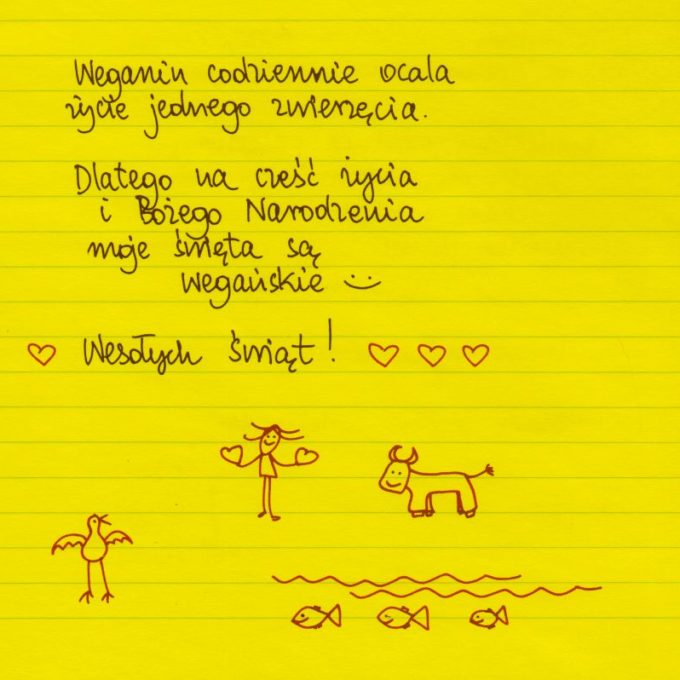 Weganin codziennie ocala
życie jednego zwierzęcia.
Dlatego na cześć życia
i Bożego Narodzenia
moje święta są
wegańskie
Wesołych świąt!